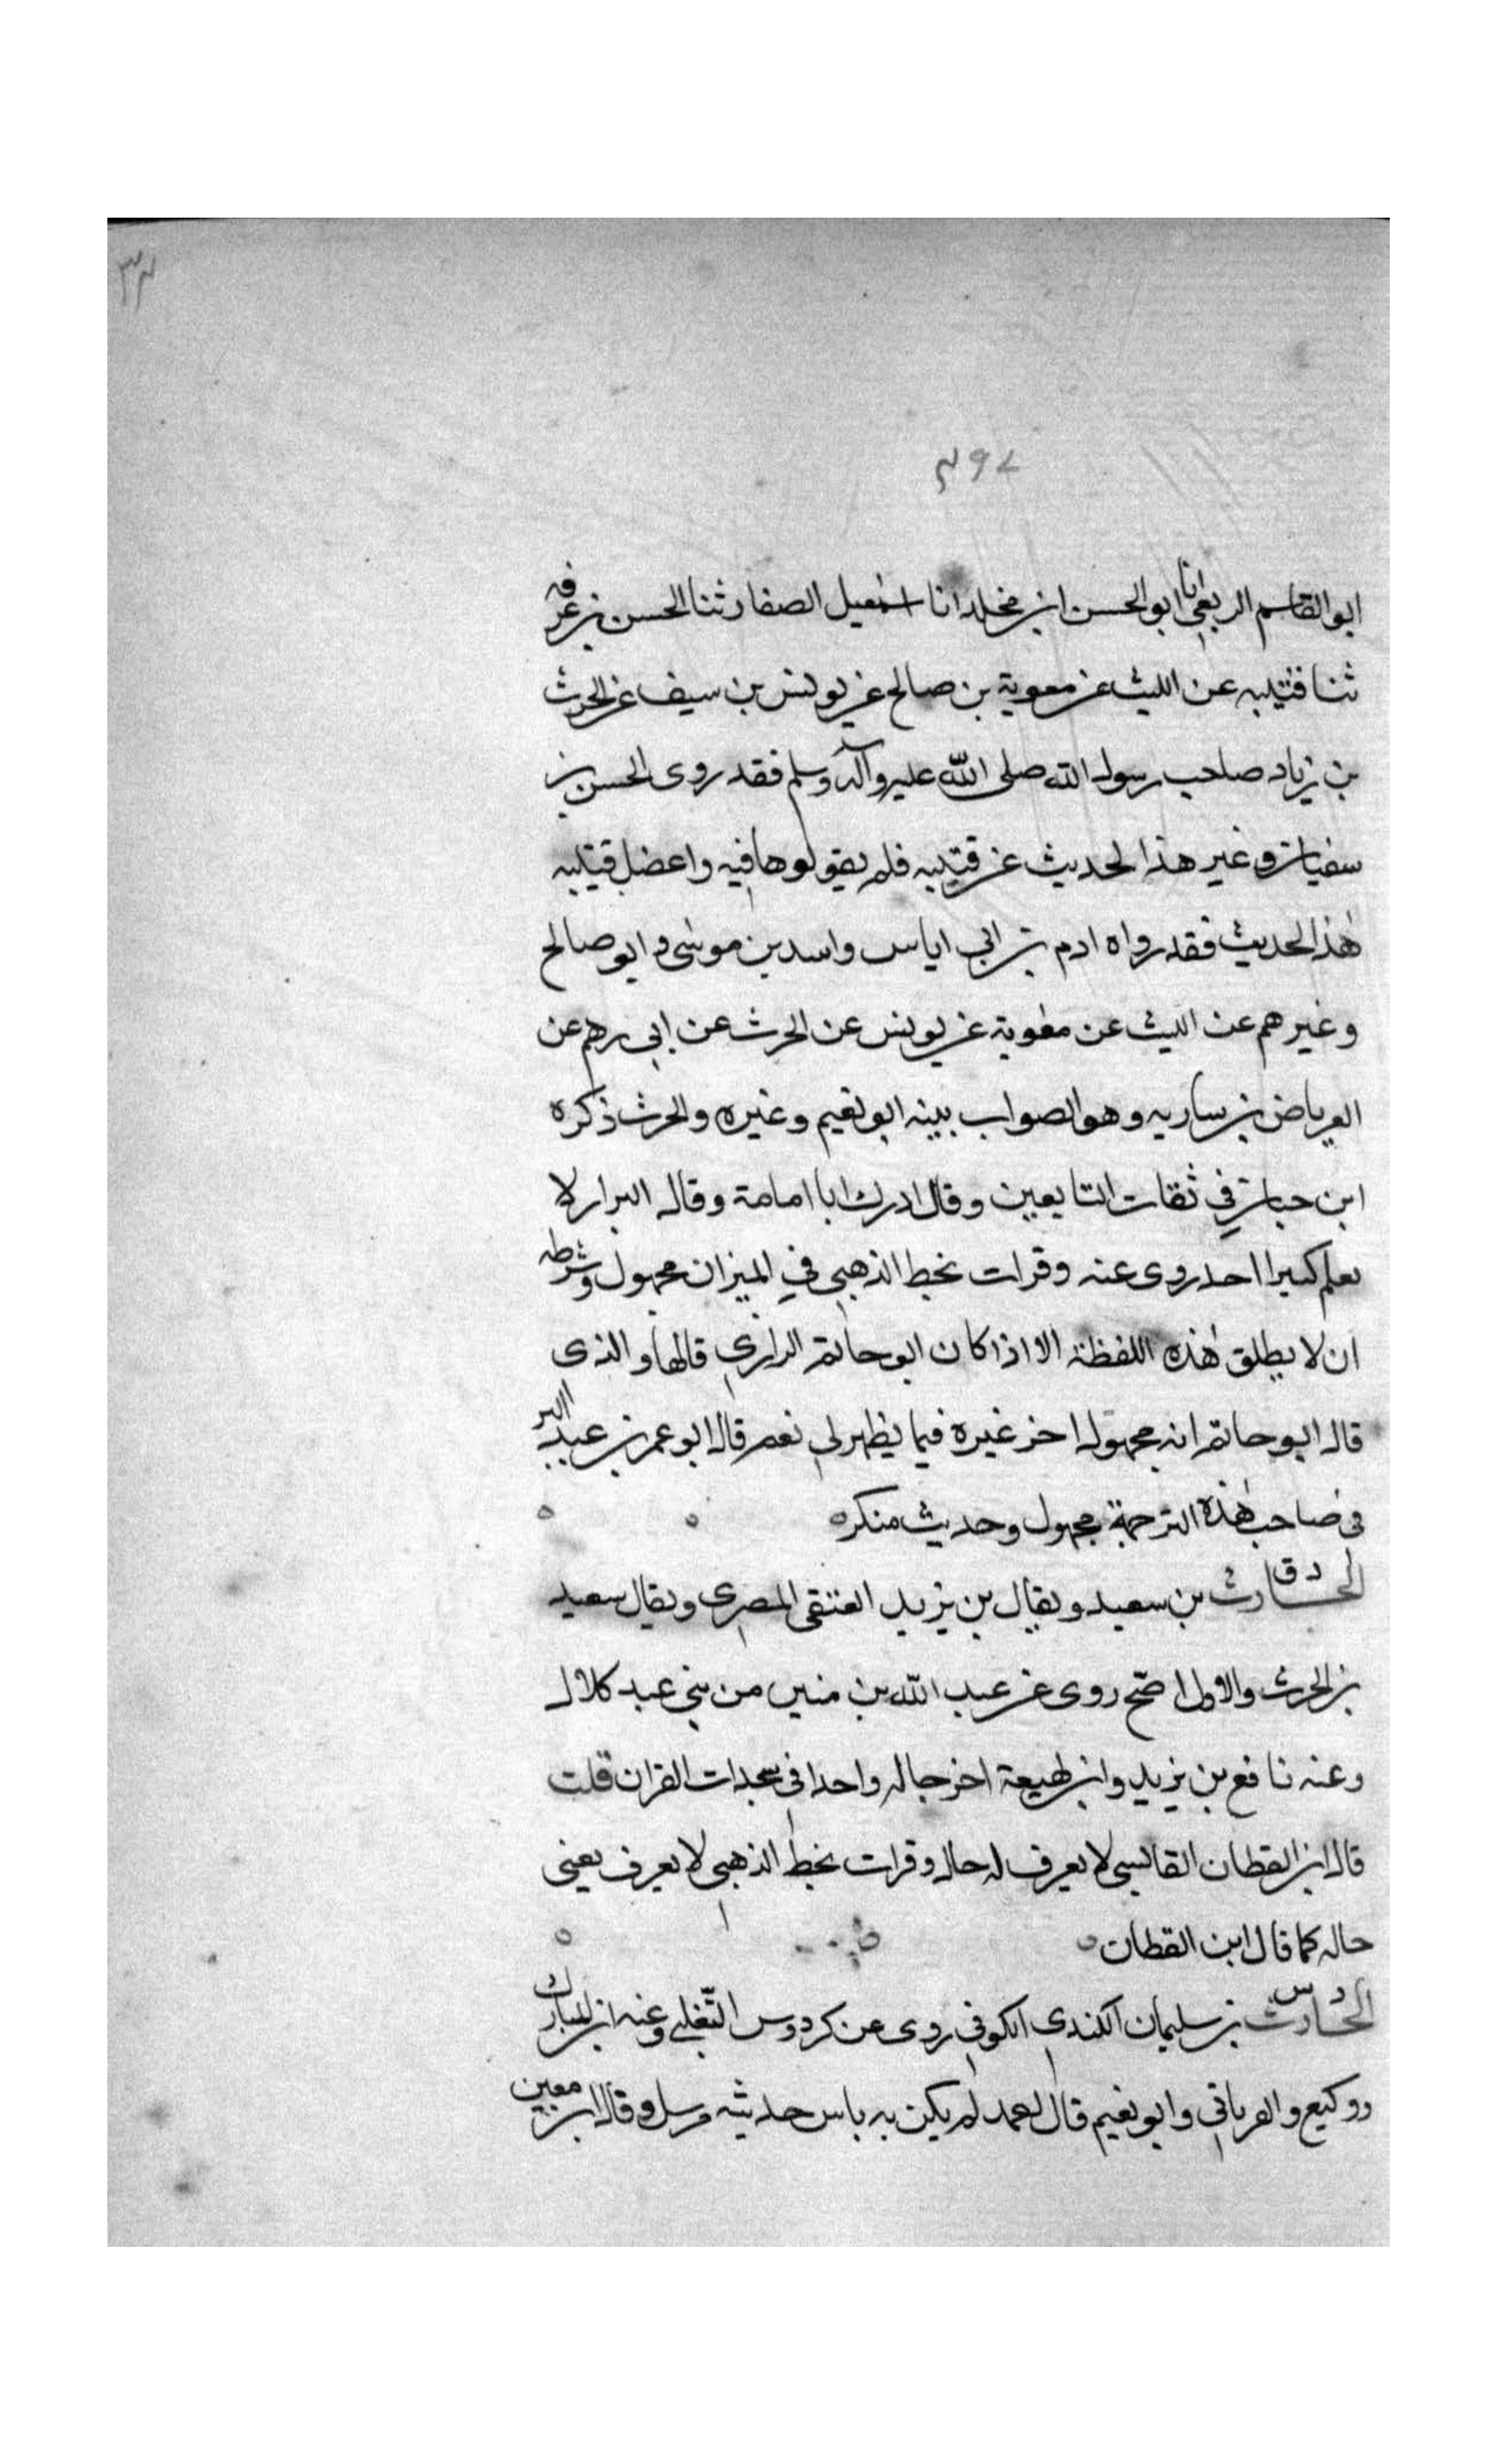 ٣٣
٣٩٧
ابو القاسم الربعي انا ابو الحسن ابن مخلد انا اسمعيل الصفار ثنا الحسن بن عرفه
ثنا قتيبه عن الليث عن معوية بن صالح عن يونس بن سيف عن الحرث
بن زياد صاحب رسول الله صلى الله عليه وآله وسلم فقد روى الحسن بن
سفيان وغير هذا الحديث عن قتيبه فلم يقولوها فيه واعضل قتيبه
هذا الحديث فقد رواه ادم بن ابي اياس واسد بن موسى و ابو صالح
وغيرهم عن الليث عن معوية عن يونس عن الحرث عن ابي رهم عن
العرباض بن ساريه وهو الصواب بينه ابو نعيم وغيره والحرث ذكره
ابن حبان في ثقات التابعين وقال ادرك ابا امامة وقال البزار لا
نعلم كبيرا احد روى عنه وقرات بخط الذهبي في الميزان مجهول وشرطه
ان لا يطلق هذه اللفظة الا اذا كان ابو حاتم الرازي قالها والذى
قال ابو حاتم انه مجهول اخر غيره فيما يظهر لي نعم قال ابو عمر بن عبد البر
في صاحب هذه الترجمة مجهول وحديث منكره
د ق
الحارث بن سعيد ويقال بن يزيد العتقي المصرى ويقال سعيد
بن الحرث والاول اصح روى عن عبد الله بن منين من بني عبد كلال
وعنه نافع بن يزيد وابن لهيعة اخرجا له واحدا في سجدات القران قلت
قال ابن القطان الفاسي لا يعرف له حال وقرات بخط الذهبي لا يعرف يعني
حاله كما قال ابن القطان
د س
الحارث بن سليمان الكندي الكوفي روى عن كردوس التغلبي وعنه ابن المبارك
ووكيع والفريابي وابو نعيم قال احمد لم يكن به باس حديثه مرسل وقال ابن معين